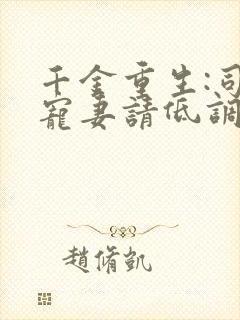 千金重生:司
寵妻請低調
趙脩凱